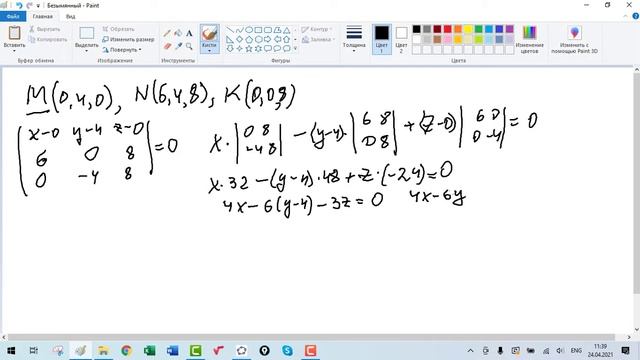 Безымянный - Paint
Файл Главная Вид
Вставить Вырезать Копировать Выделить Обрезать Изменить размер Повернуть Кисти Контур Заливка Толщина Цвет 1 Цвет 2 Изменение цветов Изменить с помощью Paint 3D
Буфер обмена Изображение Инструменты Фигуры Цвета
M(0,4,0), N(6,4,8), K(0,0,8)
|x-0 y-4 z-0|
|6 0 8| = 0
|0 -4 8|
x · |0 8| - (y-4) · |6 8| + (z-0) |6 0| = 0
|-4 8| |0 8| |0 -4|
x · 32 - (y-4) · 48 + z · (-24) = 0
4x - 6(y-4) - 3z = 0 4x - 6y
11:39
24.04.2021